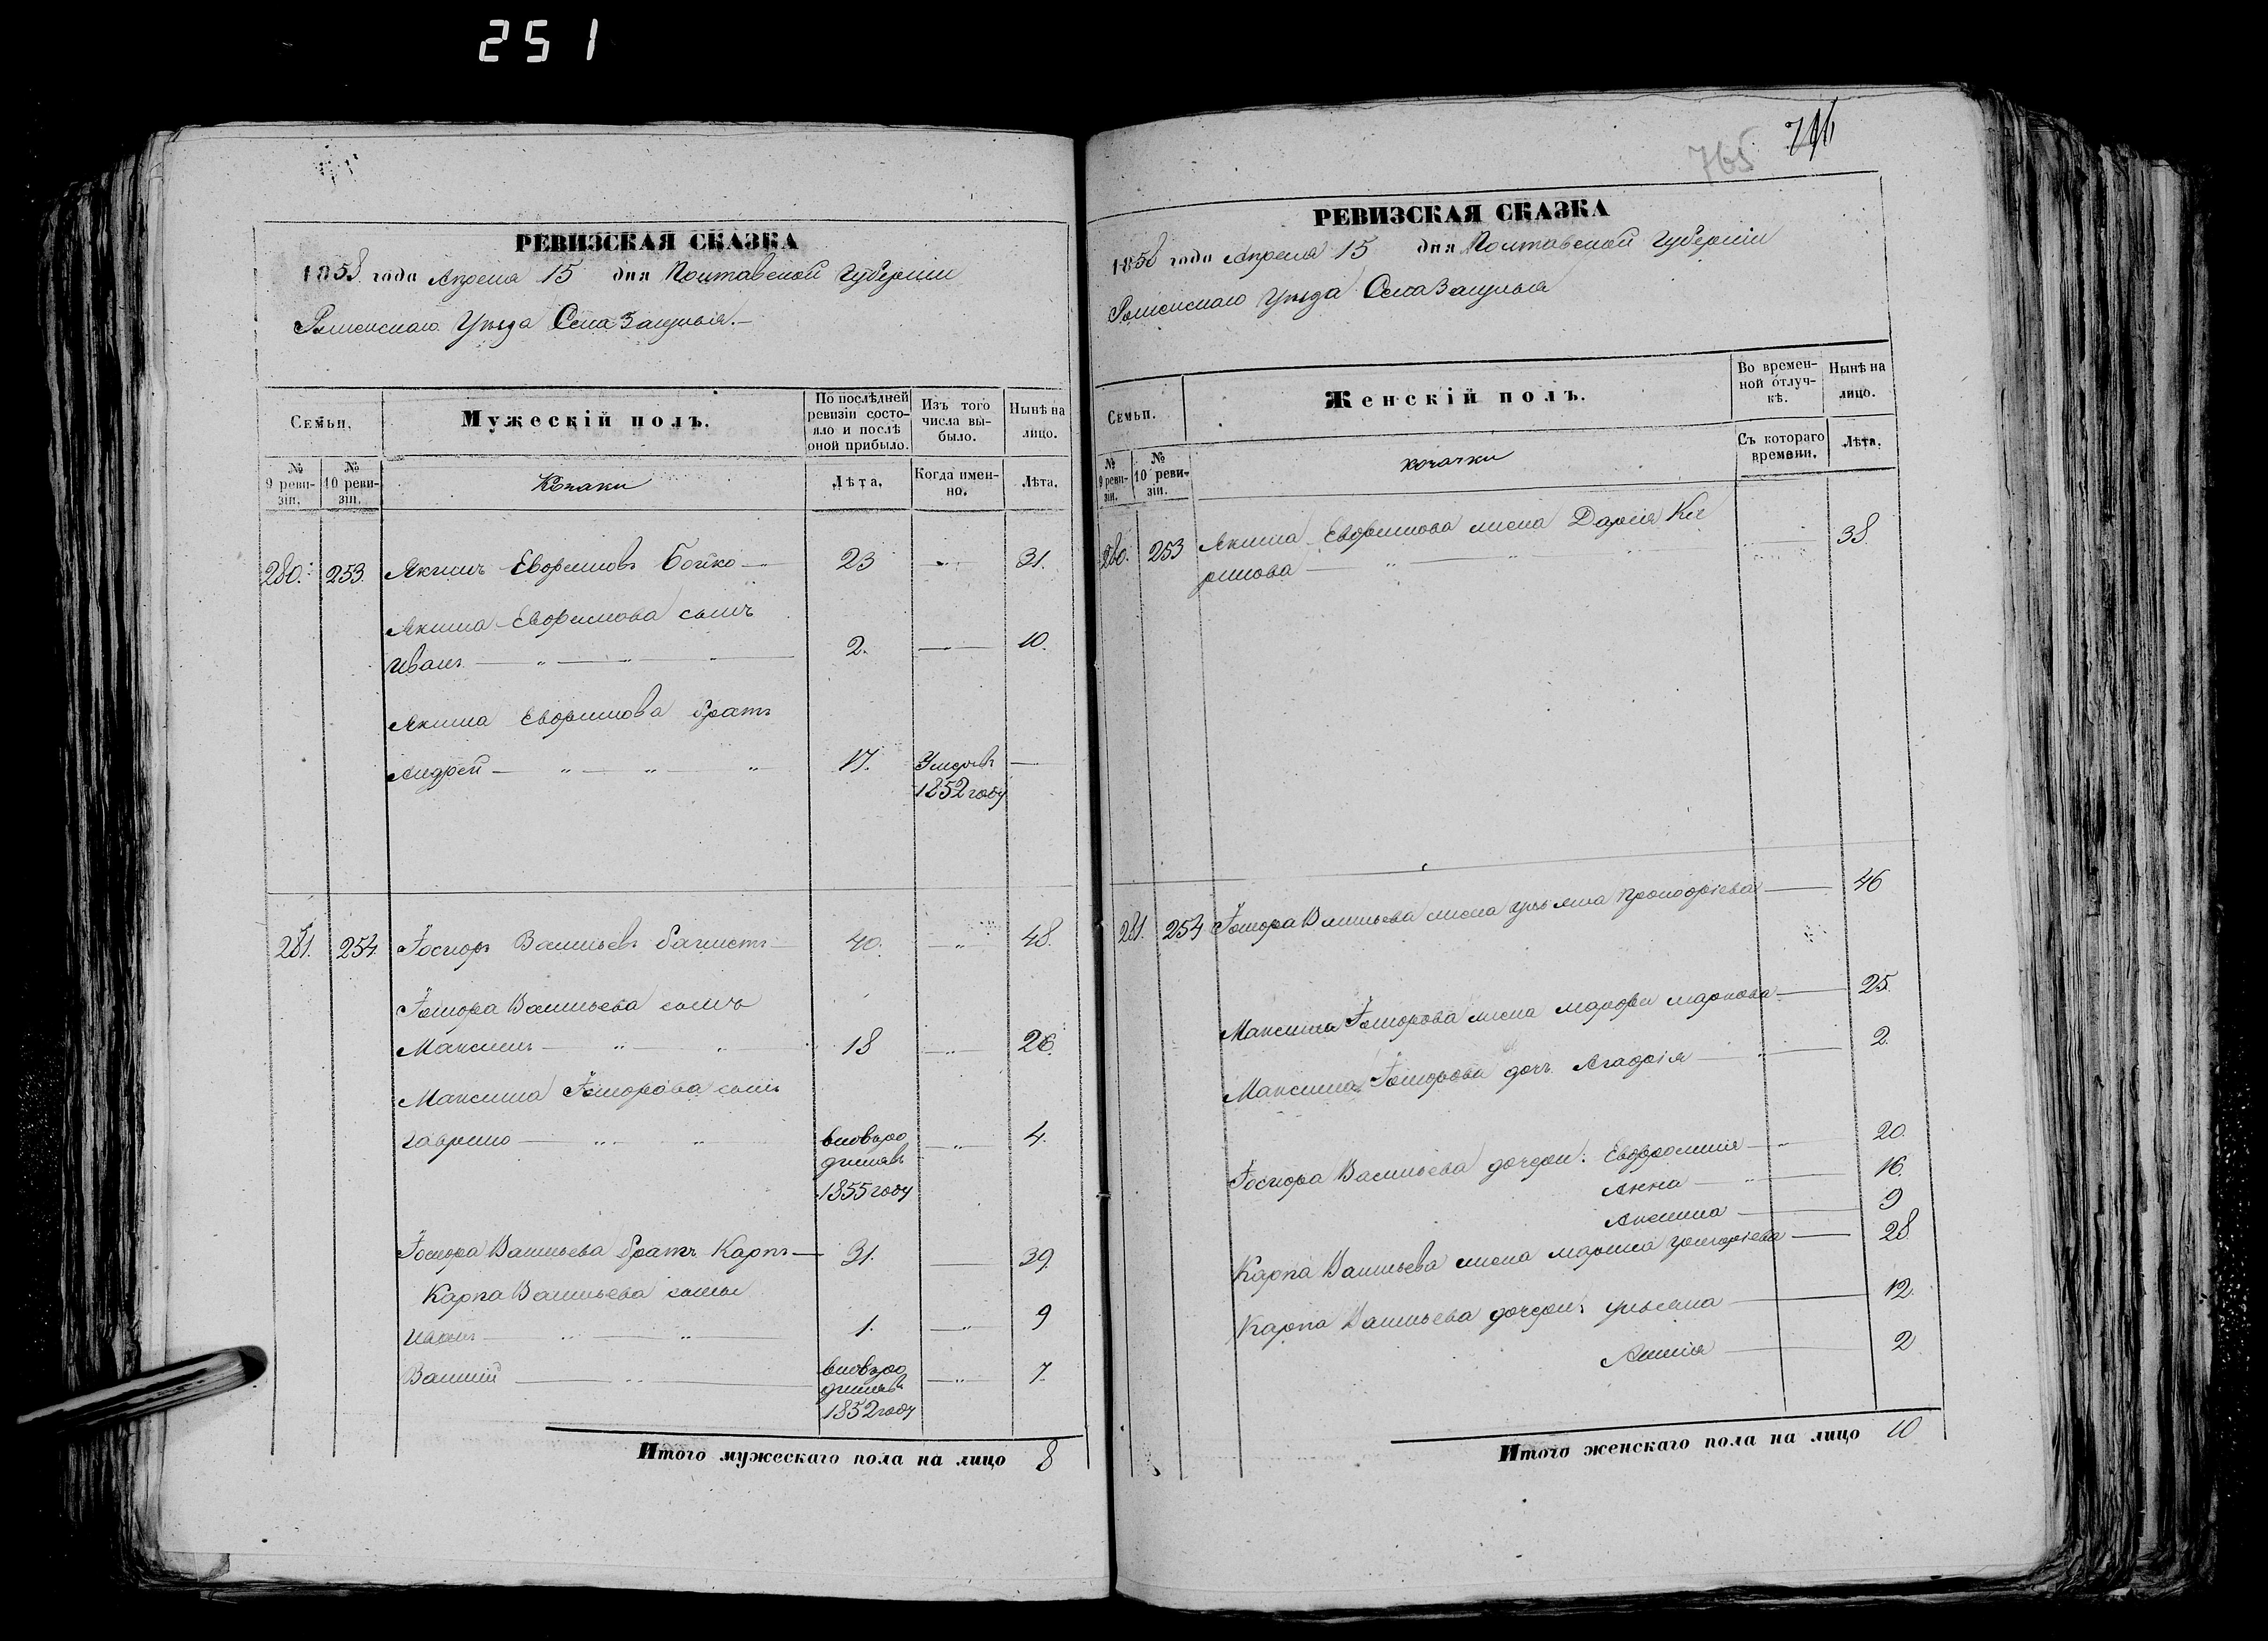 251
РЕВИЗСКАЯ СКАЗКА
1858 года Апреля 15 дня Полтавской Губернии
Роменскаго Уезда Села
Семьи.
Мужескій полъ.
По послѣдней ревизіи состояло и послѣ оной прибыло.
Изъ того числа выбыло.
Нынѣ на лицо.
№ 9 ревизіи.
№ 10 ревизіи.
Козаки
Лѣта.
Когда именно.
Лѣта.
280. 253. Якимъ Евфимовъ Бойко 23 31.
Якима Евфимова сынъ
Иванъ 2. 10.
Якима Евфимова братъ
Андрей 17. Умеръ
1852 году
281. 254. Іосифъ Васильевъ 40. 48.
Васильева сынъ
Максимъ 18 26.
Максима сынъ
Гаврило вновь ро 4.
1855 году
Васильева братъ Карпъ 31. 39.
Карпа Васильева сыны
Иванъ 1. 9
Василій вновь ро 7.
1852 году
Итого мужескаго пола на лицо 8
765 746
РЕВИЗСКАЯ СКАЗКА
1858 года Апреля 15 дня Полтавской Губерніи
Роменскаго Уезда Села
Семьи.
Женскій полъ.
Во временной отлучкѣ.
Нынѣ на лицо.
№ 9 ревизіи.
№ 10 ревизіи.
козачки
Съ котораго времени.
Лѣта.
280. 253 Якима Евфимова жена Дарія Ки
рилова 38
281. 254 Васильева жена Ульяна Прокофіева 46
Максима жена Маркова 25.
Максима дочь Агафія 2.
Васильева дочери: Евфросинія 20.
Анна 16.
Аксинья 9
Карпа Васильева жена Марина Григоріева 28
Карпа Васильева дочери: Ульяна 12.
2
Итого женскаго пола на лицо 10